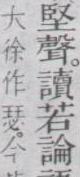 堅聲。讀若論
大徐作瑟。今